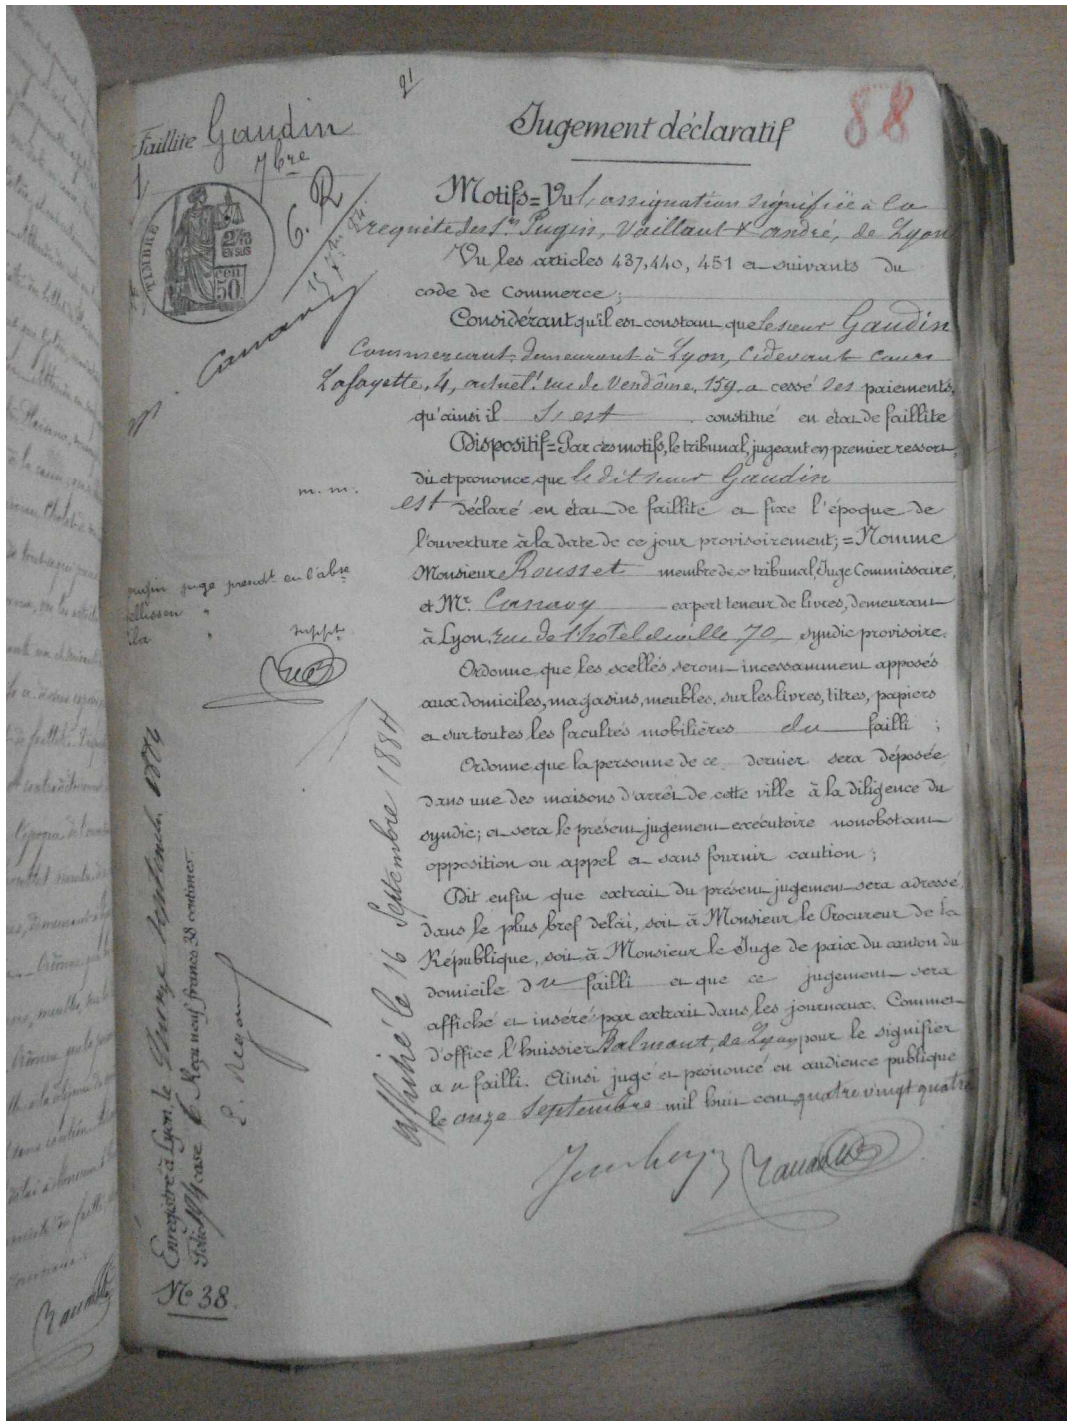 91
88
Faillite Gaudin
7bre
Jugement déclaratif
TIMBRE
2/10 EN SUS
50
6. R
Canavy
Motifs = Vu l'assignation signifiée à la
requête des Srs Pugin, Vaillant & andré, de Lyon
Vu les articles 437, 440, 451 et suivants du
code de Commerce;
Considérant qu'il est constant que le sieur Gaudin
Commerçant, demeurant à Lyon, cidevant cours
Lafayette, 4, actuelt rue de Vendôme, 159, a cessé ses paiements,
qu'ainsi il s'est constitué en état de faillite
Dispositif = Par ces motifs, le tribunal, jugeant en premier ressort,
dit et prononce que le dit sieur Gaudin
est déclaré en état de faillite et fixe l'époque de
l'ouverture à la date de ce jour provisoirement; = Nomme
Monsieur Rousset membre de ce tribunal, Juge Commissaire,
et Mr. Canavy expert teneur de livres, demeurant
à Lyon, rue de l'hotel de ville 70, syndic provisoire.
Ordonne que les scellés seront incessamment apposés
aux domiciles, magasins, meubles, sur les livres, titres, papiers
et sur toutes les facultés mobilières du failli;
Ordonne que la personne de ce dernier sera déposée
dans une des maisons d'arrêt de cette ville à la diligence du
syndic; et sera le présent jugement exécutoire nonobstant
opposition ou appel et sans fournir caution;
Dit enfin que extrait du présent jugement sera adressé,
dans le plus bref délai, soit à Monsieur le Procureur de la
République, soit à Monsieur le Juge de paix du canton du
domicile du failli et que ce jugement sera
affiché et inséré par extrait dans les journaux. Commet
d'office l'huissier Balmont, de Lyon pour le signifier
au failli. Ainsi jugé et prononcé en audience publique
le onze Septembre mil huit cent quatre vingt quatre
m. m.
juge prendt. en l'abse
suppt.
affiché le 16 Septembre 1884
Enregistré à Lyon, le Septembre 1884
Folio case 6 Reçu neuf francs 38 centimes.
No 38.